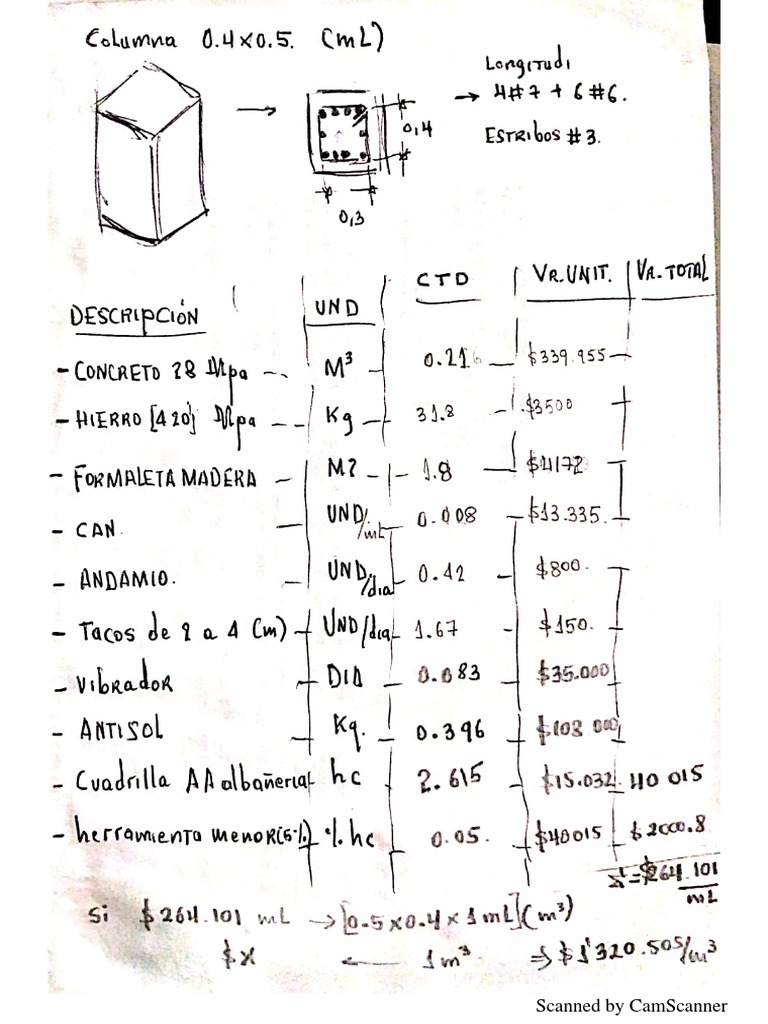 Columna 0.4x0.5. (mL)
Longitudi
→ 4#7 + 6#6.
Estribos #3.
0,4
0,3
DESCRIPCIÓN UND CTD VR.UNIT. VR.TOTAL
- CONCRETO 28 Mpa -- M³ - 0.216 - $339.955
- HIERRO [420] Mpa -- Kg - 31.8 - $3500
- FORMALETA MADERA - M2 - 1.8 - $4172
- CAN. - UND/mL - 0.008 - $13.335.
- ANDAMIO. - UND/dia - 0.42 - $800.
- Tacos de 2 a 4 (m) - UND/dia - 1.67 - $150.
- Vibrador - DIA - 0.083 - $35.000
- ANTISOL - Kg. - 0.396 - $108 000
- Cuadrilla AA albañeria hc 2.615 $15.032 40 015
- herramienta menor (5%) %.hc 0.05. $40015 $2000.8
Σ=$264.101
mL
Si $264.101 mL → [0.5x0.4x1mL](m³)
$x ← 1m³ ⇒ $1'320.505/m³
Scanned by CamScanner